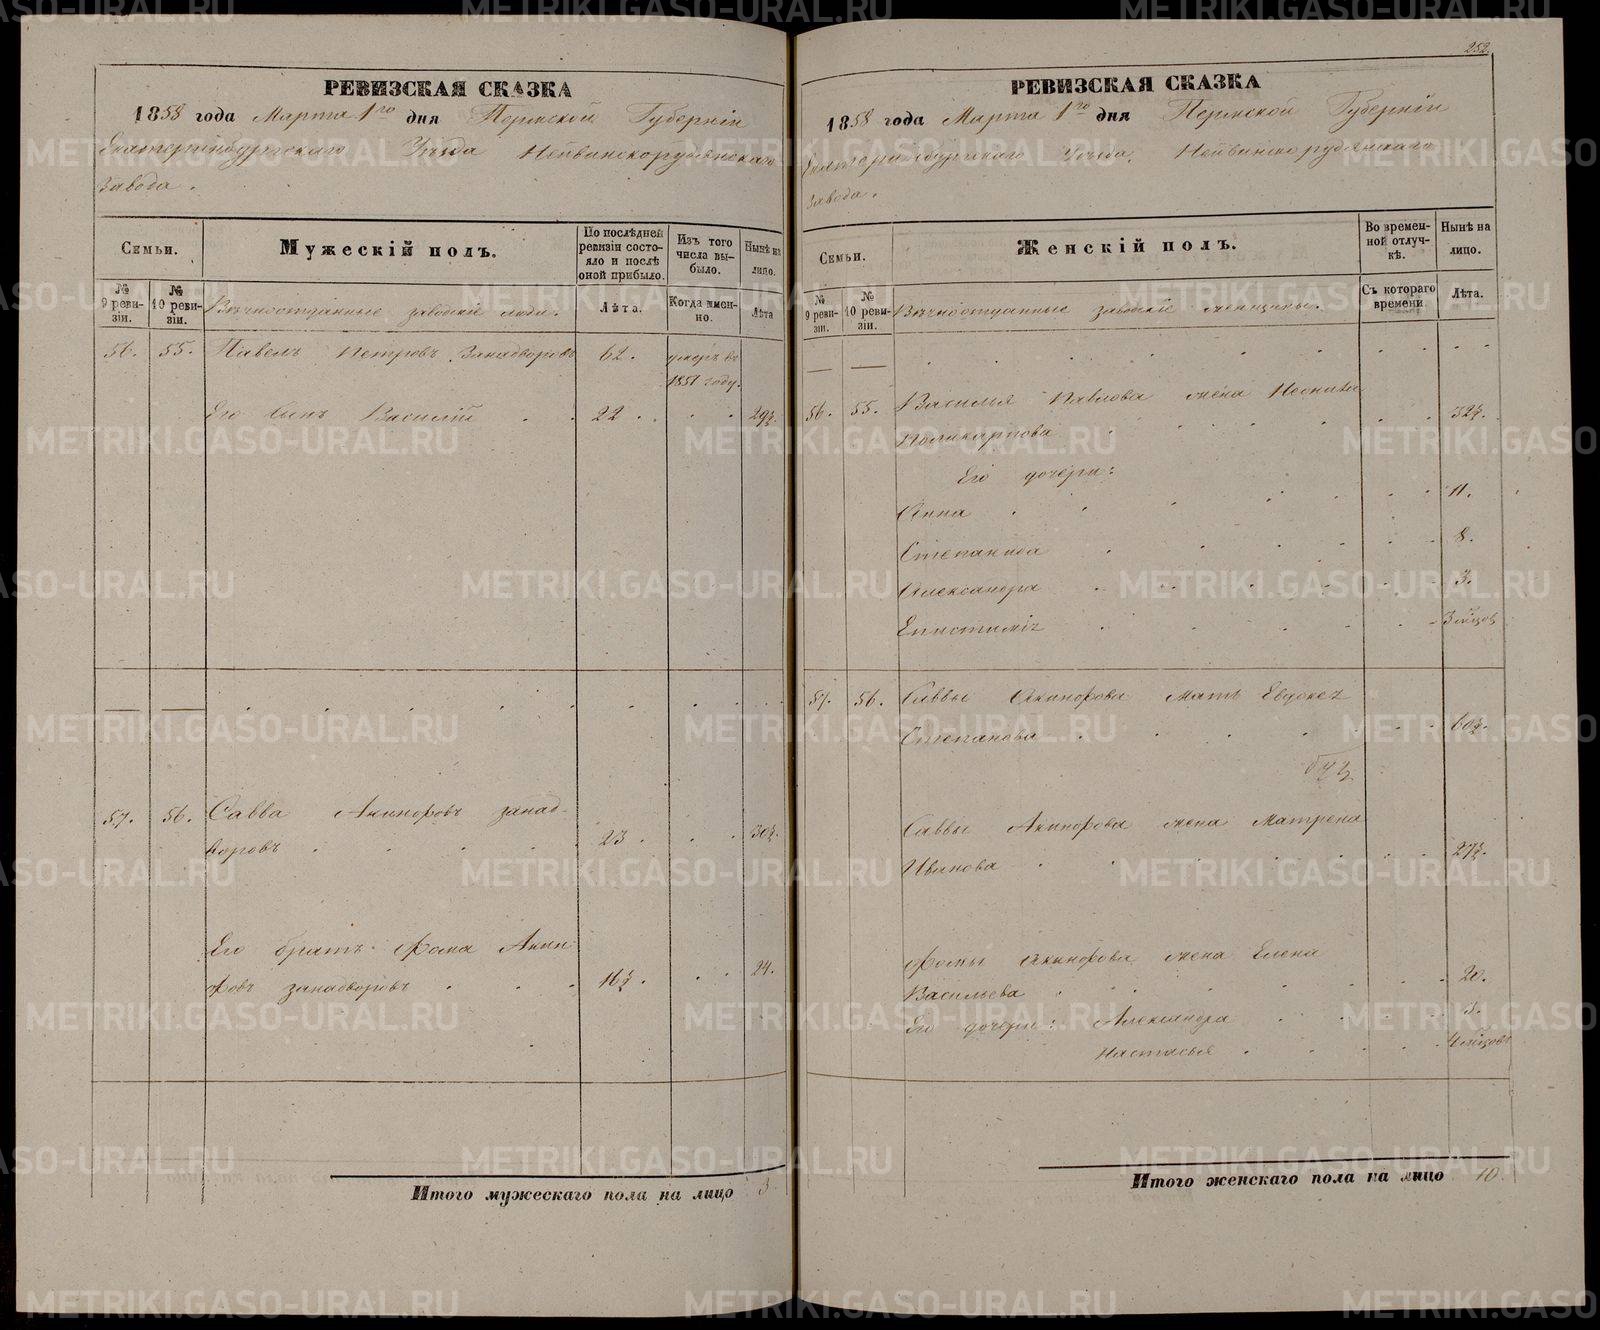 РЕВИЗСКАЯ СКАЗКА
1858 года Марта 1го дня Пермской Губерніи
Екатеринбургскаго Уѣзда Нейвинскорудянскаго
завода.
Семьи.
Мужескій полъ.
По послѣдней ревизіи состояло и послѣ оной прибыло.
Изъ того числа выбыло.
Нынѣ на лицо.
№ 9 ревизіи.
№ 10 ревизіи.
Вѣчноотданные заводскіе люди.
Лѣта.
Когда именно.
Лѣта
56. 55. Павелъ Петровъ Занадворовъ 62. умеръ въ
1851 году.
Его сынъ Василій 22. 29½.
57. 56. Савва Акинфовъ занад-
воровъ 23. 30½.
Его братъ Фома Акин
фовъ занадворовъ 16½. 24.
Итого мужескаго пола на лицо 3
252.
РЕВИЗСКАЯ СКАЗКА
1858 года Марта 1го дня Пермской Губерніи
Екатеринбургскаго Уѣзда Нейвинскорудянскаго
завода.
Семьи.
Женскій полъ.
Во временной отлучкѣ.
Нынѣ на лицо.
№ 9 ревизіи.
№ 10 ревизіи.
Вѣчноотданные заводскіе женщины.
Съ котораго времени
Лѣта.
56. 55. Василья Павлова жена
Поликарпова 32½.
Его дочери:
Анна 11.
Степанида 8.
Александра 3.
Епистимія 3 мѣсяцов
57. 56. Саввы Акинфова мать Евдокея
Степанова 60½.
Саввы Акинфова жена Матрена
Иванова 27½.
Фомы Акинфова жена Елена
Васильева 20.
Его дочери: Александра 3.
Настасья 4 мѣсяцовъ
Итого женскаго пола на лицо 10.
METRIKI.GASO-URAL.RU